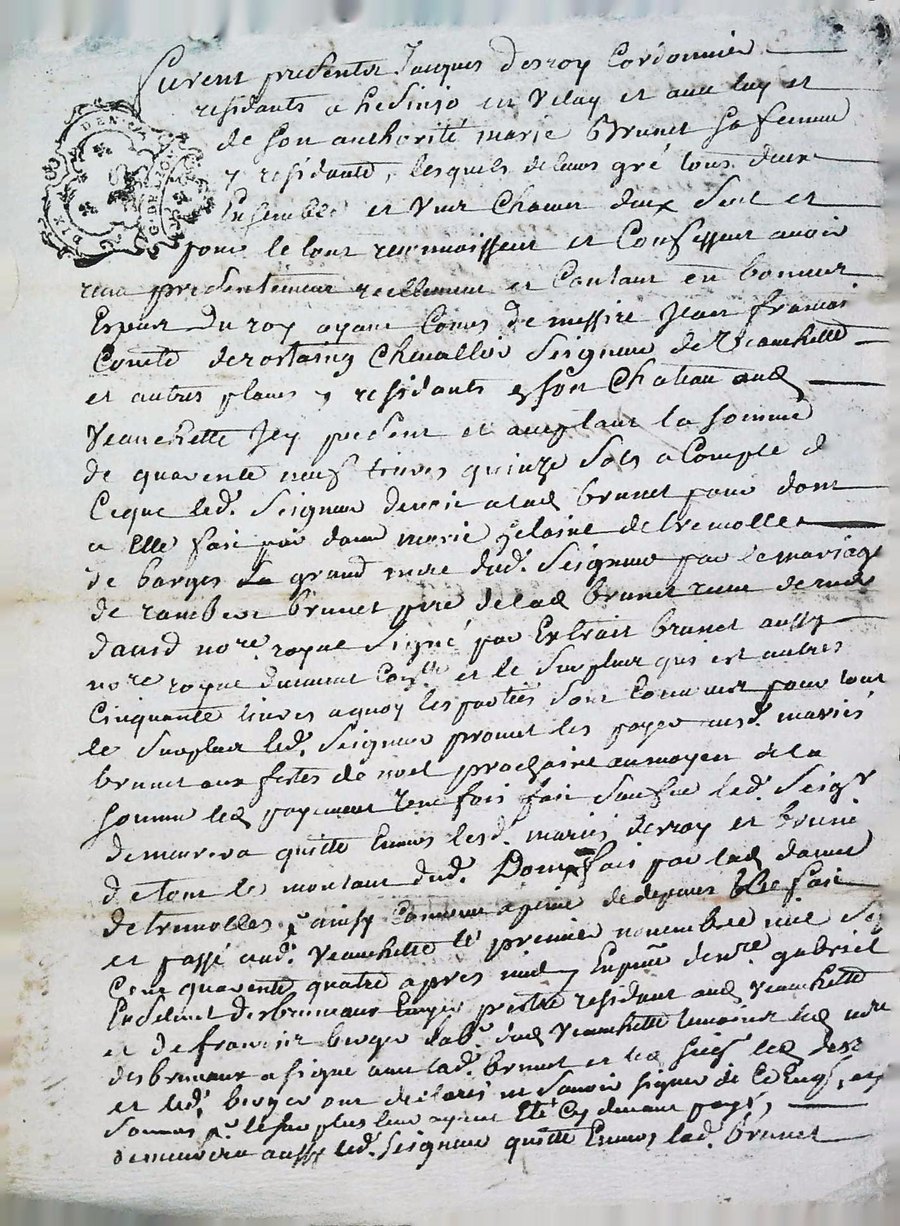 furent presentes Jacques desroy Cordonnier
residants a en Velay et avec luy et
de son authorité marie Brunet sa femme
DIX DEN. G. DE
y residante, lesquels de leurs gré tous deux
Ensemble et Un Chacun deux seul et
pour le tout reconnoissent et Confessent avoir
receu presentement reellement et Contant en bonnes
Especes du roy ayant Cours de messire Jean francois
Comte de rostaing Chevallier Seigneur de Veauchette
et autres places y residants son Chateau aud
Veauchette Icy present et acceptant la somme
de quarente neuf livres quinze sols a Compte d
Ceque led. Seigneur devoit a lad brunet pour dont
a Elle fait par dame marie de tremolles
de barges grand mere dud. Seigneur par le mariage
de rambert brunet pere de lad brunet receu de
david nore. royal Signé par Extrait brunet aussy
nore royal et le surplus qui est autres
Cinquante livres aquoy les parties sont Convenues pour tout
le surplus led. Seigneur promet les payer ausd. mariés
brunet aux festes de noel prochaine au moyen de la
somme led payement Une fois fait led. Seigr
demeurera quitte Envers lesd. mariés desroy et brunet
de tout le montant dud. Don fait par lad dame
de tremolles, ainsy Convenu a peine de depens fait
et passé aud. Veauchette le premier novembre mil Se
Cent quarente quatre apres midy En pnce de mre. gabriel
desbruneaux pretre residant aud Veauchette
et de francois berger lab. dud Veauchette temoins led mre
desbruneaux a signé avec lad. brunet et led Seigr led desr
et led. berger ont declarés ne Scavoir signer de Ce Enqs, et
Sommes le surplus leur ayant Eté Cy devant payé,
demeurera aussy led. Seigneur quitte Envers lad. brunet